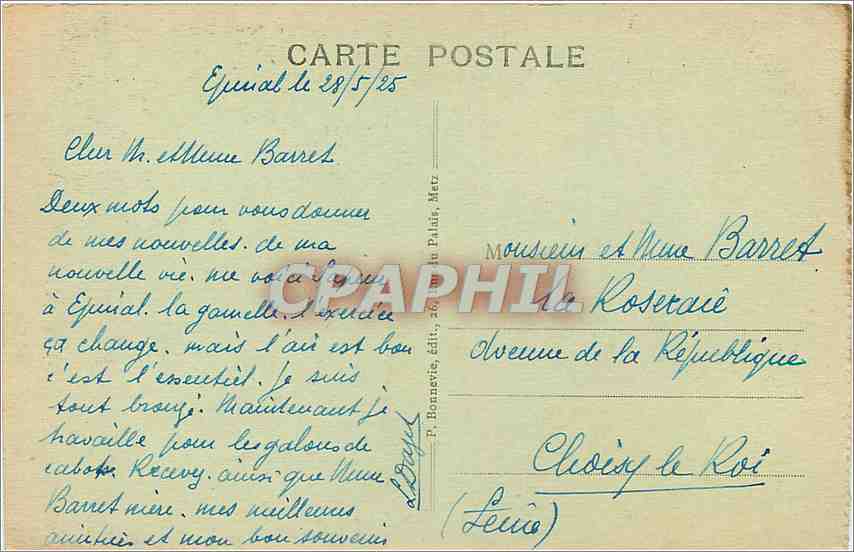 CARTE POSTALE
Epinal le 28/5/25
Cher Mr. et Mme Barret.
Deux mots pour vous donner
de mes nouvelles. de ma
nouvelle vie. me voici
à Epinal. la gamelle. l'exercice
ça change. mais l'air est bon
c'est l'essentiel. Je suis
tout bronzé. Maintenant je
travaille pour les galons de
cabots. Recevez ainsi que Mme
Barret mère. mes meilleures
amitiés et mon bon souvenir
P. Bonnevie, édit., 26, du Palais, Metz
CPAPHIL
Monsieur et Mme Barret.
la Roseraie
Avenue de la République
Choisy le Roi
(Seine)